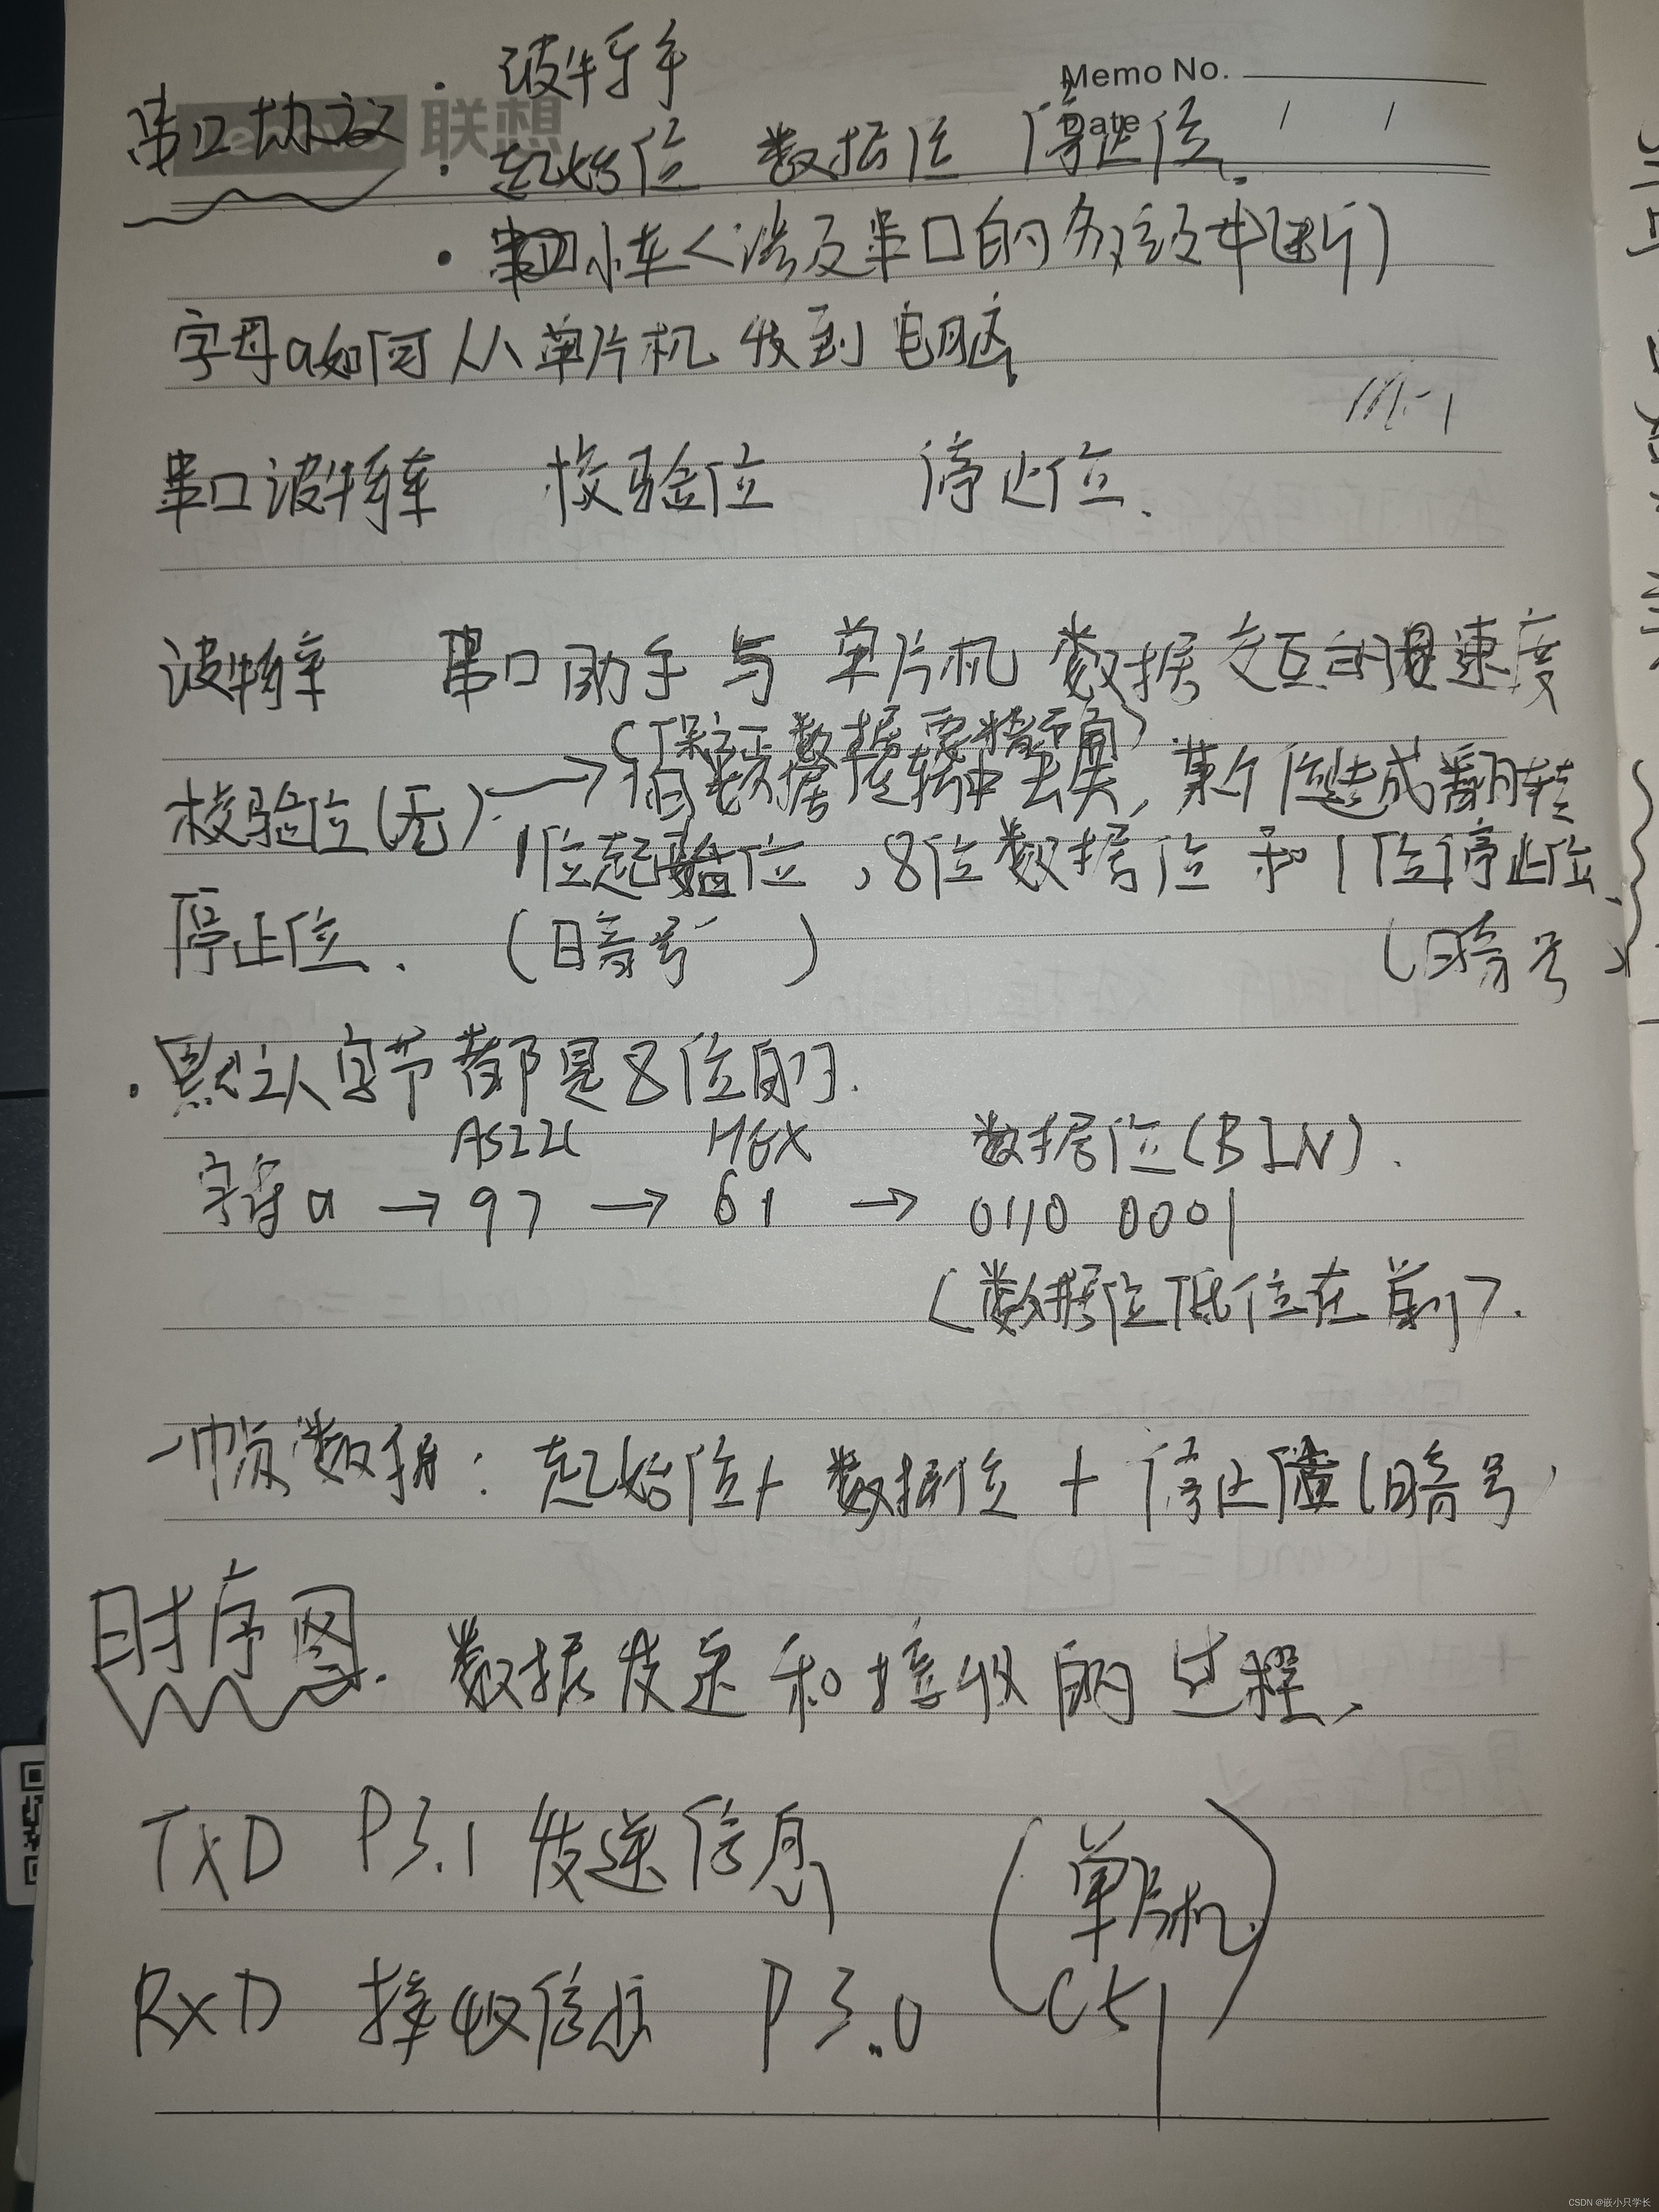 Memo No.
Date / /
联想
串口协议
· 波特率
· 起始位 数据位 停止位.
· 小车<涉及串口的多级中断)
字母a如何从单片机发到电脑
串口波特率 校验位 停止位.
波特率 串口助手与单片机数据交互的速度
(保证数据要精确)
校验位(无) → 数据在传输中丢失,某个位造成翻转
1位起始位,8位数据位和1位停止位
停止位. (暗号) (暗号)
· 默认字节都是8位的.
ASZII HEX 数据位(BIN).
字母a → 97 → 61 → 0110 0001
(数据位低位在前).
一帧数据: 起始位+数据位+停止位(暗号)
时序图. 数据发送和接收的过程.
TXD P3.1 发送信息
(单片机
C51)
RXD 接收信息 P3.0
CSDN @嵌小只学长